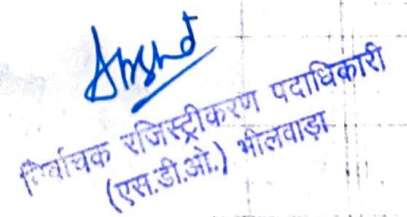 निर्वाचक रजिस्ट्रीकरण पदाधिकारी
(एस.डी.ओ.) भीलवाड़ा